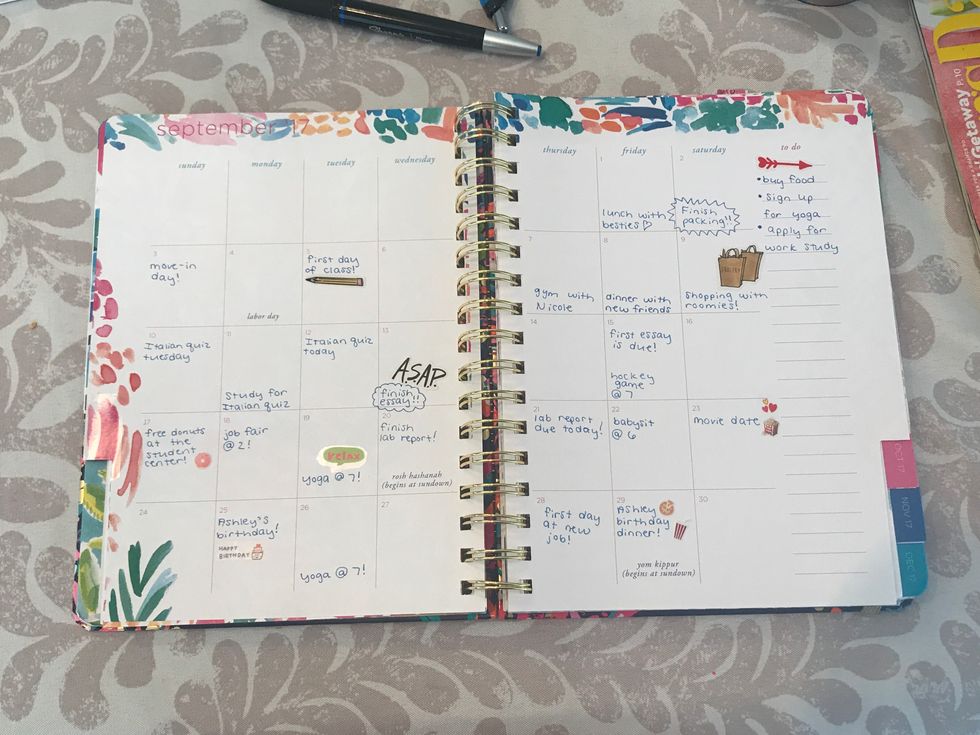 september 17
sunday
monday
tuesday
wednesday
thursday
friday
saturday
to do
1
lunch with
besties
2
Finish
packing!!
• buy food
• sign up
for yoga
• apply for
work study
3
move-in
day!
4
labor day
5
first day
of class!
6
7
gym with
Nicole
8
dinner with
new friends
9
shopping with
roomies!
10
Italian quiz
tuesday
11
study for
Italian quiz
12
Italian quiz
today
13
A.S.A.P.
finish
essay!!
14
15
first essay
is due!
hockey
game
@ 7
16
17
free donuts
at the
student
center!
18
job fair
@ 2!
19
relax
yoga @ 7!
20
finish
lab report!
rosh hashanah
(begins at sundown)
21
lab report
due today!
22
babysit
@ 6
23
movie date
24
25
Ashley's
birthday!
HAPPY
BIRTHDAY
26
yoga @ 7!
27
28
first day
at new
job!
29
Ashley
birthday
dinner!
yom kippur
(begins at sundown)
30
OCT 17
NOV 17
DEC 17
Getaway P. 10